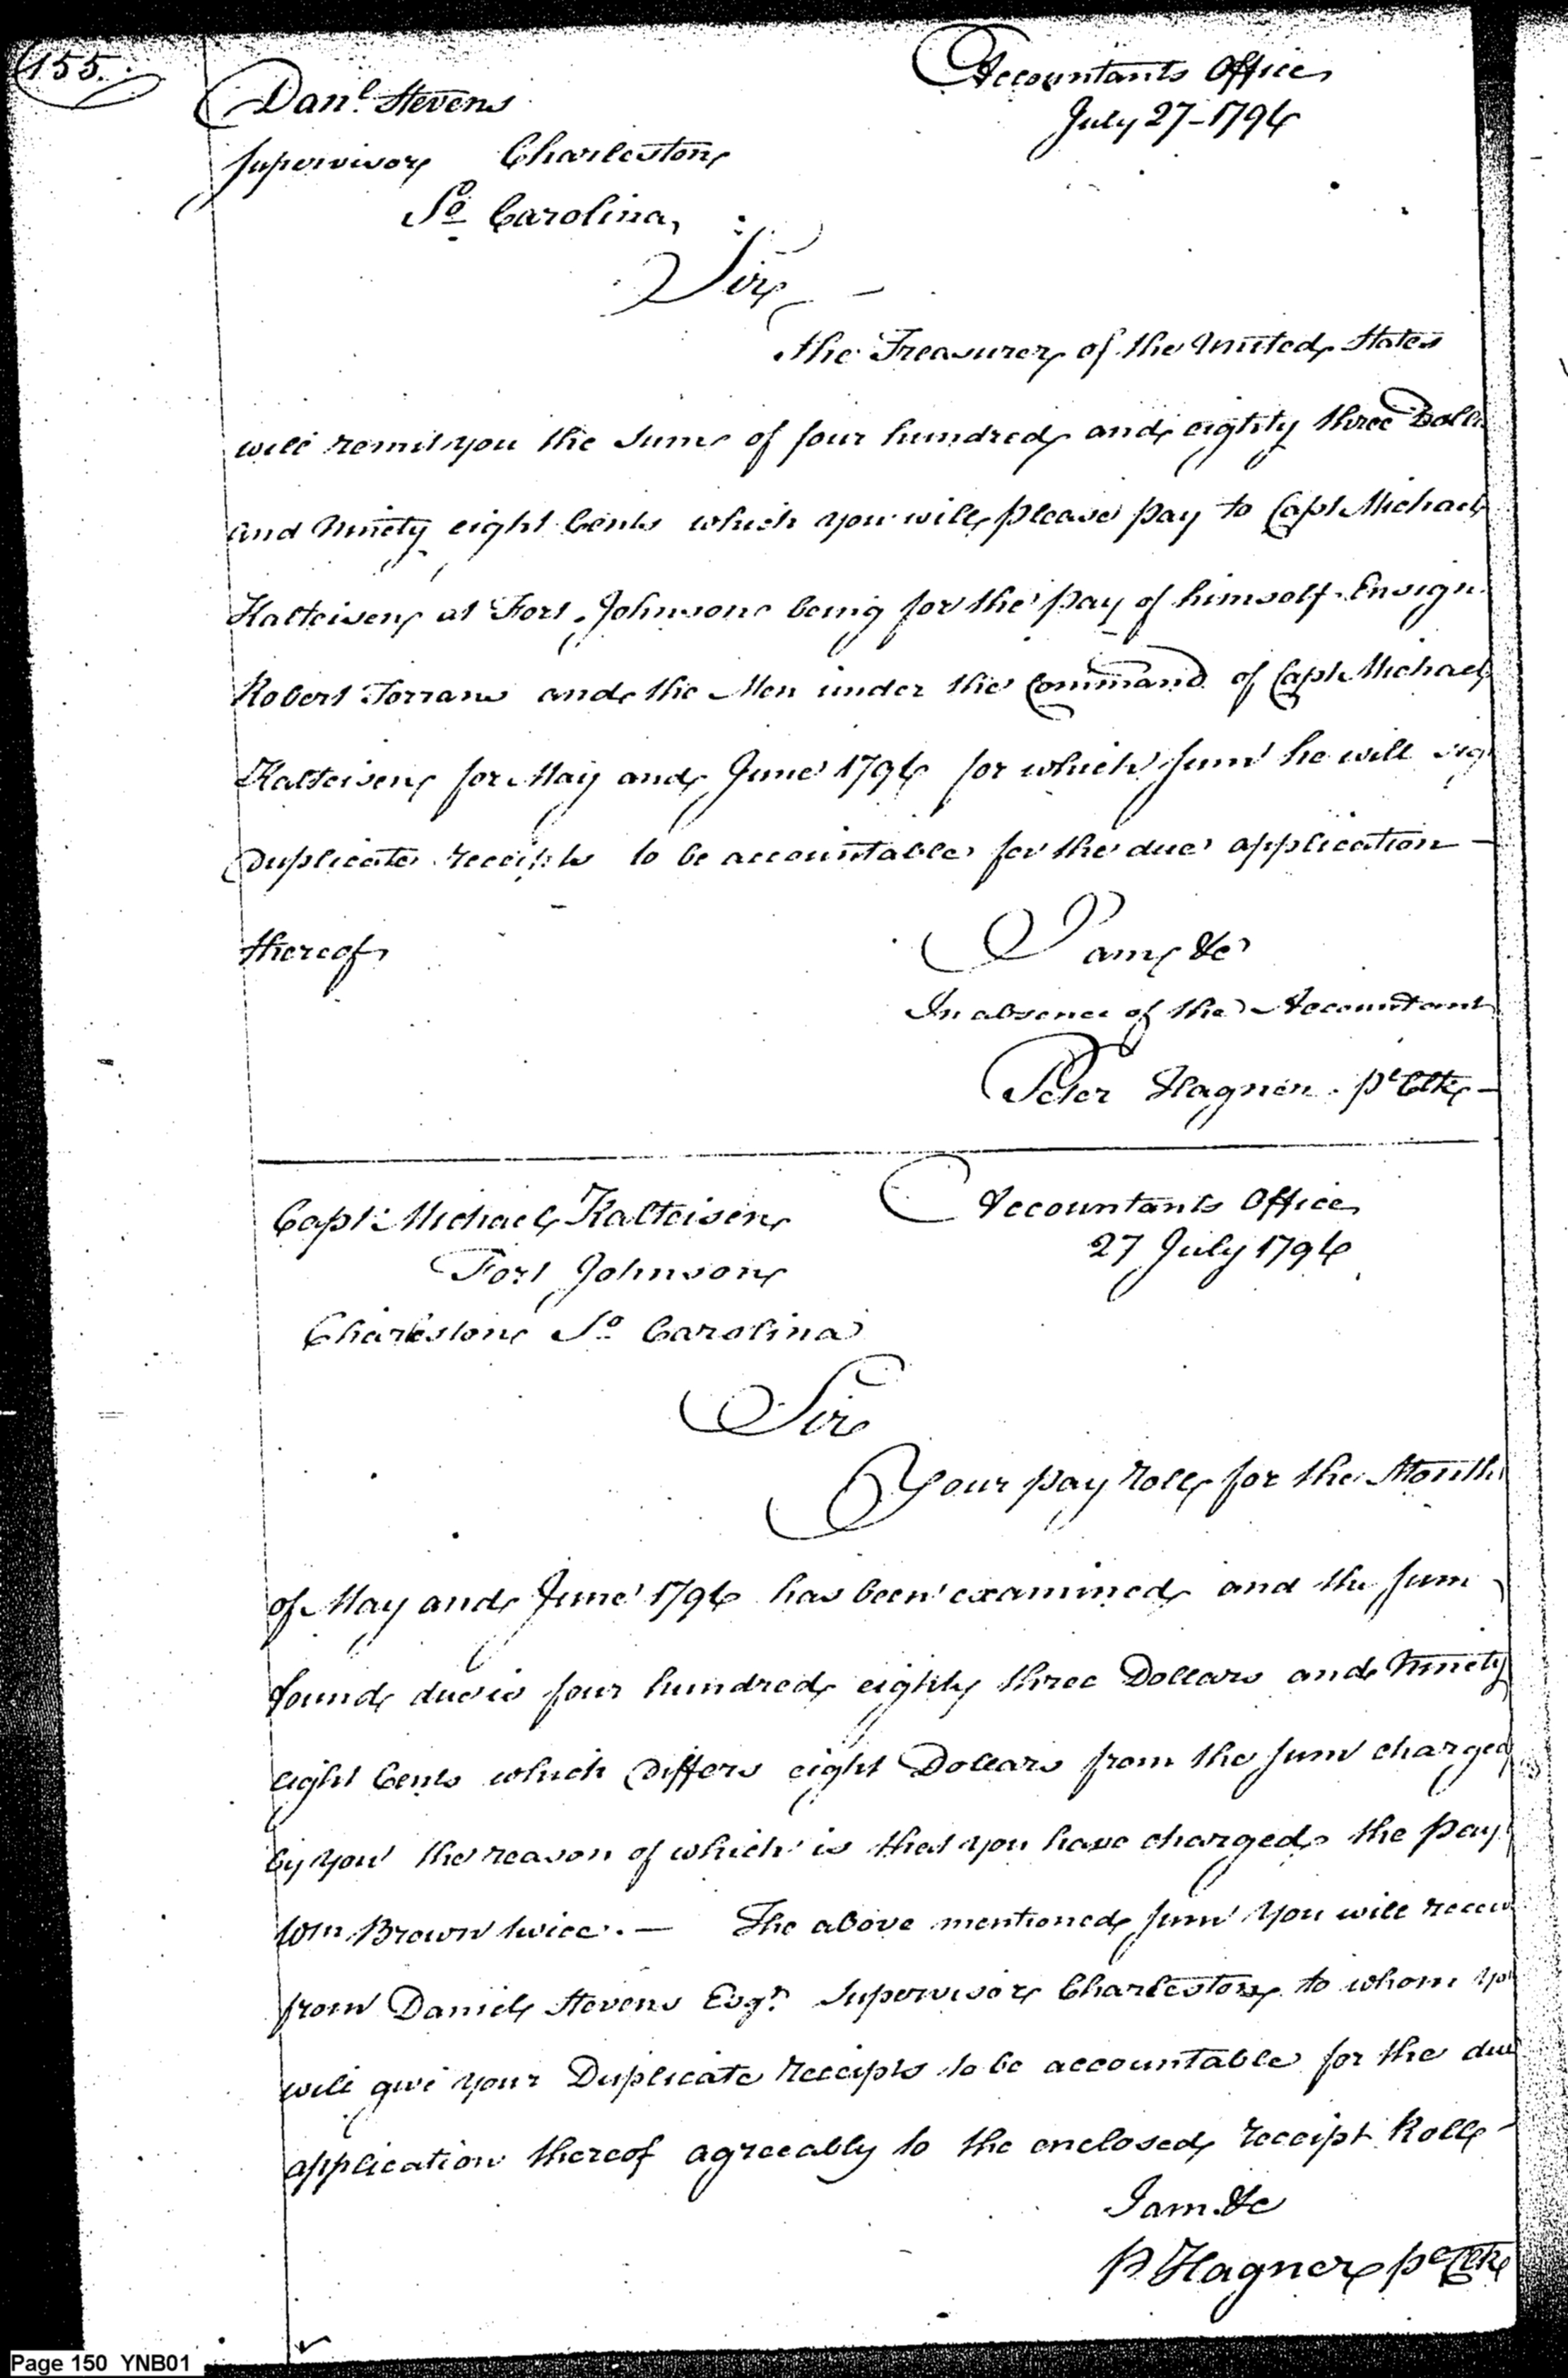 155.
Danl. Stevens
Supervisor Charleston
So Carolina,
Accountants Office
July 27-1794
Sir
the Treasurer of the United States
will remit you the Sum of four hundred and eighty three Dolls
and Ninety eight Cents which you will please pay to Capt Michael
Kalteisen at Fort Johnson being for the pay of himself Ensign
Robert Torrans and the Men under the Command of Capt Michael
Kalteisen for May and June 1794 for which Sum he will sig
Duplicate receipts to be accountable for the due application —
thereof
I am &c
In absence of the Accountant
Peter Hagner. pl Clk —
Capt: Michael Kalteisen
Fort Johnson
Charleston So Carolina
Accountants Office
27 July 1794
Sir
Your pay Roll for the Months
of May and June 1794 has been examined and the Sum
found due is four hundred eighty three Dollars and Ninety
eight Cents which Differs eight Dollars from the Sum charged
by you the reason of which is that you have charged the pay
Wm Brown twice. — The above mentioned Sum you will receiv
from Daniel Stevens Esqr. Supervisor Charleston to whom yo
will give your Duplicate receipts to be accountable for the due
application thereof agreeably to the enclosed receipt Roll -
I am &c
P Hagner pl Clk
Page 150 YNB01